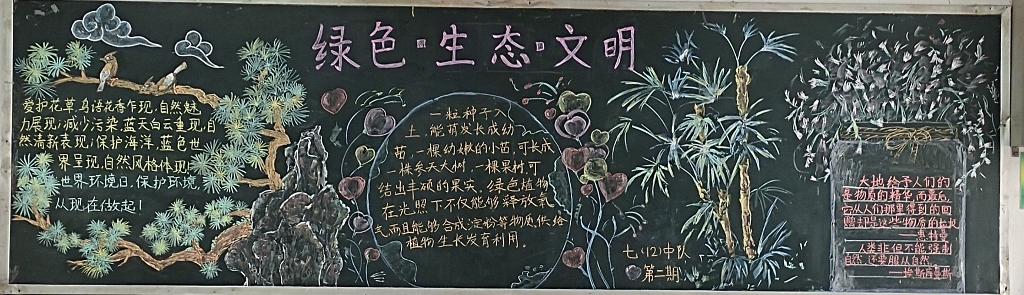 绿色·生态·文明
爱护花草,鸟语花香乍现,自然魅
力展现;减少污染,蓝天白云重现,自
然清新表现;保护海洋,蓝色世
界呈现,自然风格体现!
世界环境日,保护环境,
从现在做起!
一粒种子入
土,能萌发长成幼
苗,一棵幼嫩的小苗,可长成
一株参天大树,一棵果树可
结出丰硕的果实。绿色植物
在光照下不仅能够释放氧
气而且能够合成淀粉等物质,供给
植物生长发育利用。
七(12)中队
第二期
大地给予人们的
是物质的精华,而最后,
它从人们那里得到的回
赠却是这些物质的垃圾
人类非但不能强制
自然,还要服从自然。